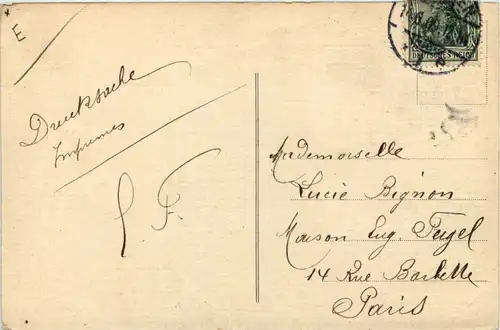 E
Drucksache
Imprimés
F.
Mademoiselle
Lucie Bignon
Maison Eug. Fugel
14 Rue Barbette
Paris